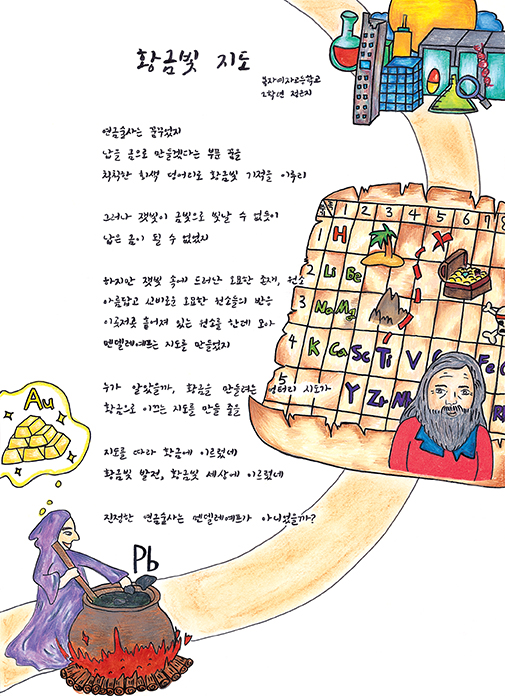 황금빛 지도
북자여자고등학교
2학년 정은지
연금술사는 꿈꾸었지
납을 금으로 만들겠다는 부푼 꿈을
칙칙한 회색 덩어리로 황금빛 기적을 이루리
그러나 잿빛이 금빛으로 빛날 수 없듯이
납은 금이 될 수 없었지
하지만 잿빛 속에 드러난 오묘한 존재, 원소
아름답고 신비로운 오묘한 원소들의 반응
이곳저곳 흩어져 있는 원소를 한데 모아
멘델레예프는 지도를 만들었지
누가 알았을까, 황금을 만들려는 엉터리 시도가
황금으로 이끄는 지도를 만들 줄을
지도를 따라 황금에 이르렀네
황금빛 발견, 황금빛 세상에 이르렀네
진정한 연금술사는 멘델레예프가 아니었을까?
1 2 3 4 5 6 7 8
1 H
2 Li Be
3 Na Mg
4 K Ca Sc Ti V Fe
5 Y Zr
X
Au
Pb